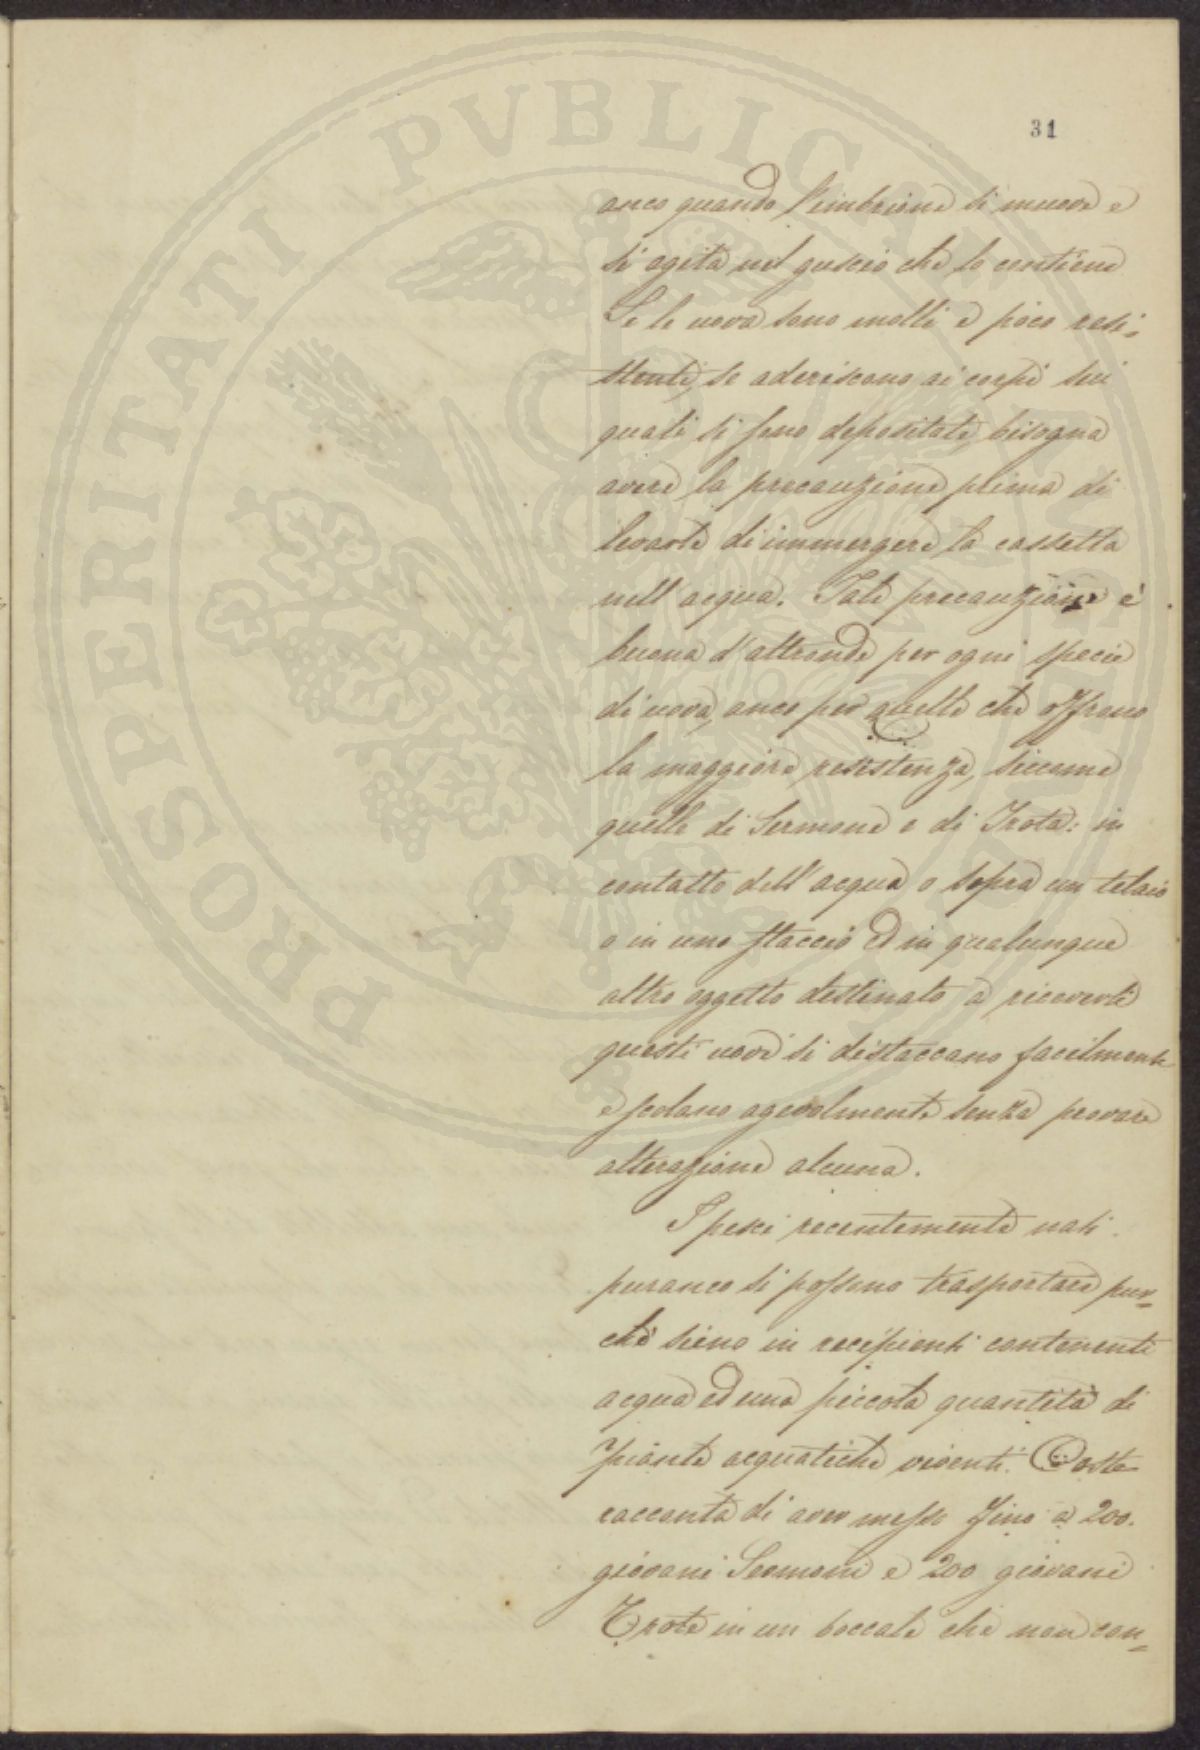 PROSPERITATI PVBLICAE
31
anco quando l'embrione si muove e
si agita nel guscio che lo contiene
Se le uova sono molli e poco resi-
stenti, se aderiscono ai corpi sui
quali si sono depositate, bisogna
avere la precauzione prima di
levarle di immergere la cassetta
nell'acqua. Tale precauzione è
buona d'altronde per ogni specie
di uova, anco per quelle che offrono
la maggiore resistenza, siccome
quelle di Sermone e di Trota: in
contatto dell'acqua o sopra un telaio
o in uno staccio od in qualunque
altro oggetto destinato a riceverle
queste uova si distaccano facilmente
e scolano agevolmente senza provare
alterazione alcuna.
I pesci recentemente nati
puranco si possono trasportare pur-
chè sieno in recipienti contenenti
acqua ed una piccola quantità di
piante acquatiche viventi. Coste
racconta di aver messo fino a 200.
giovani Sermoni e 200 giovani
Trote in un boccale che non con-